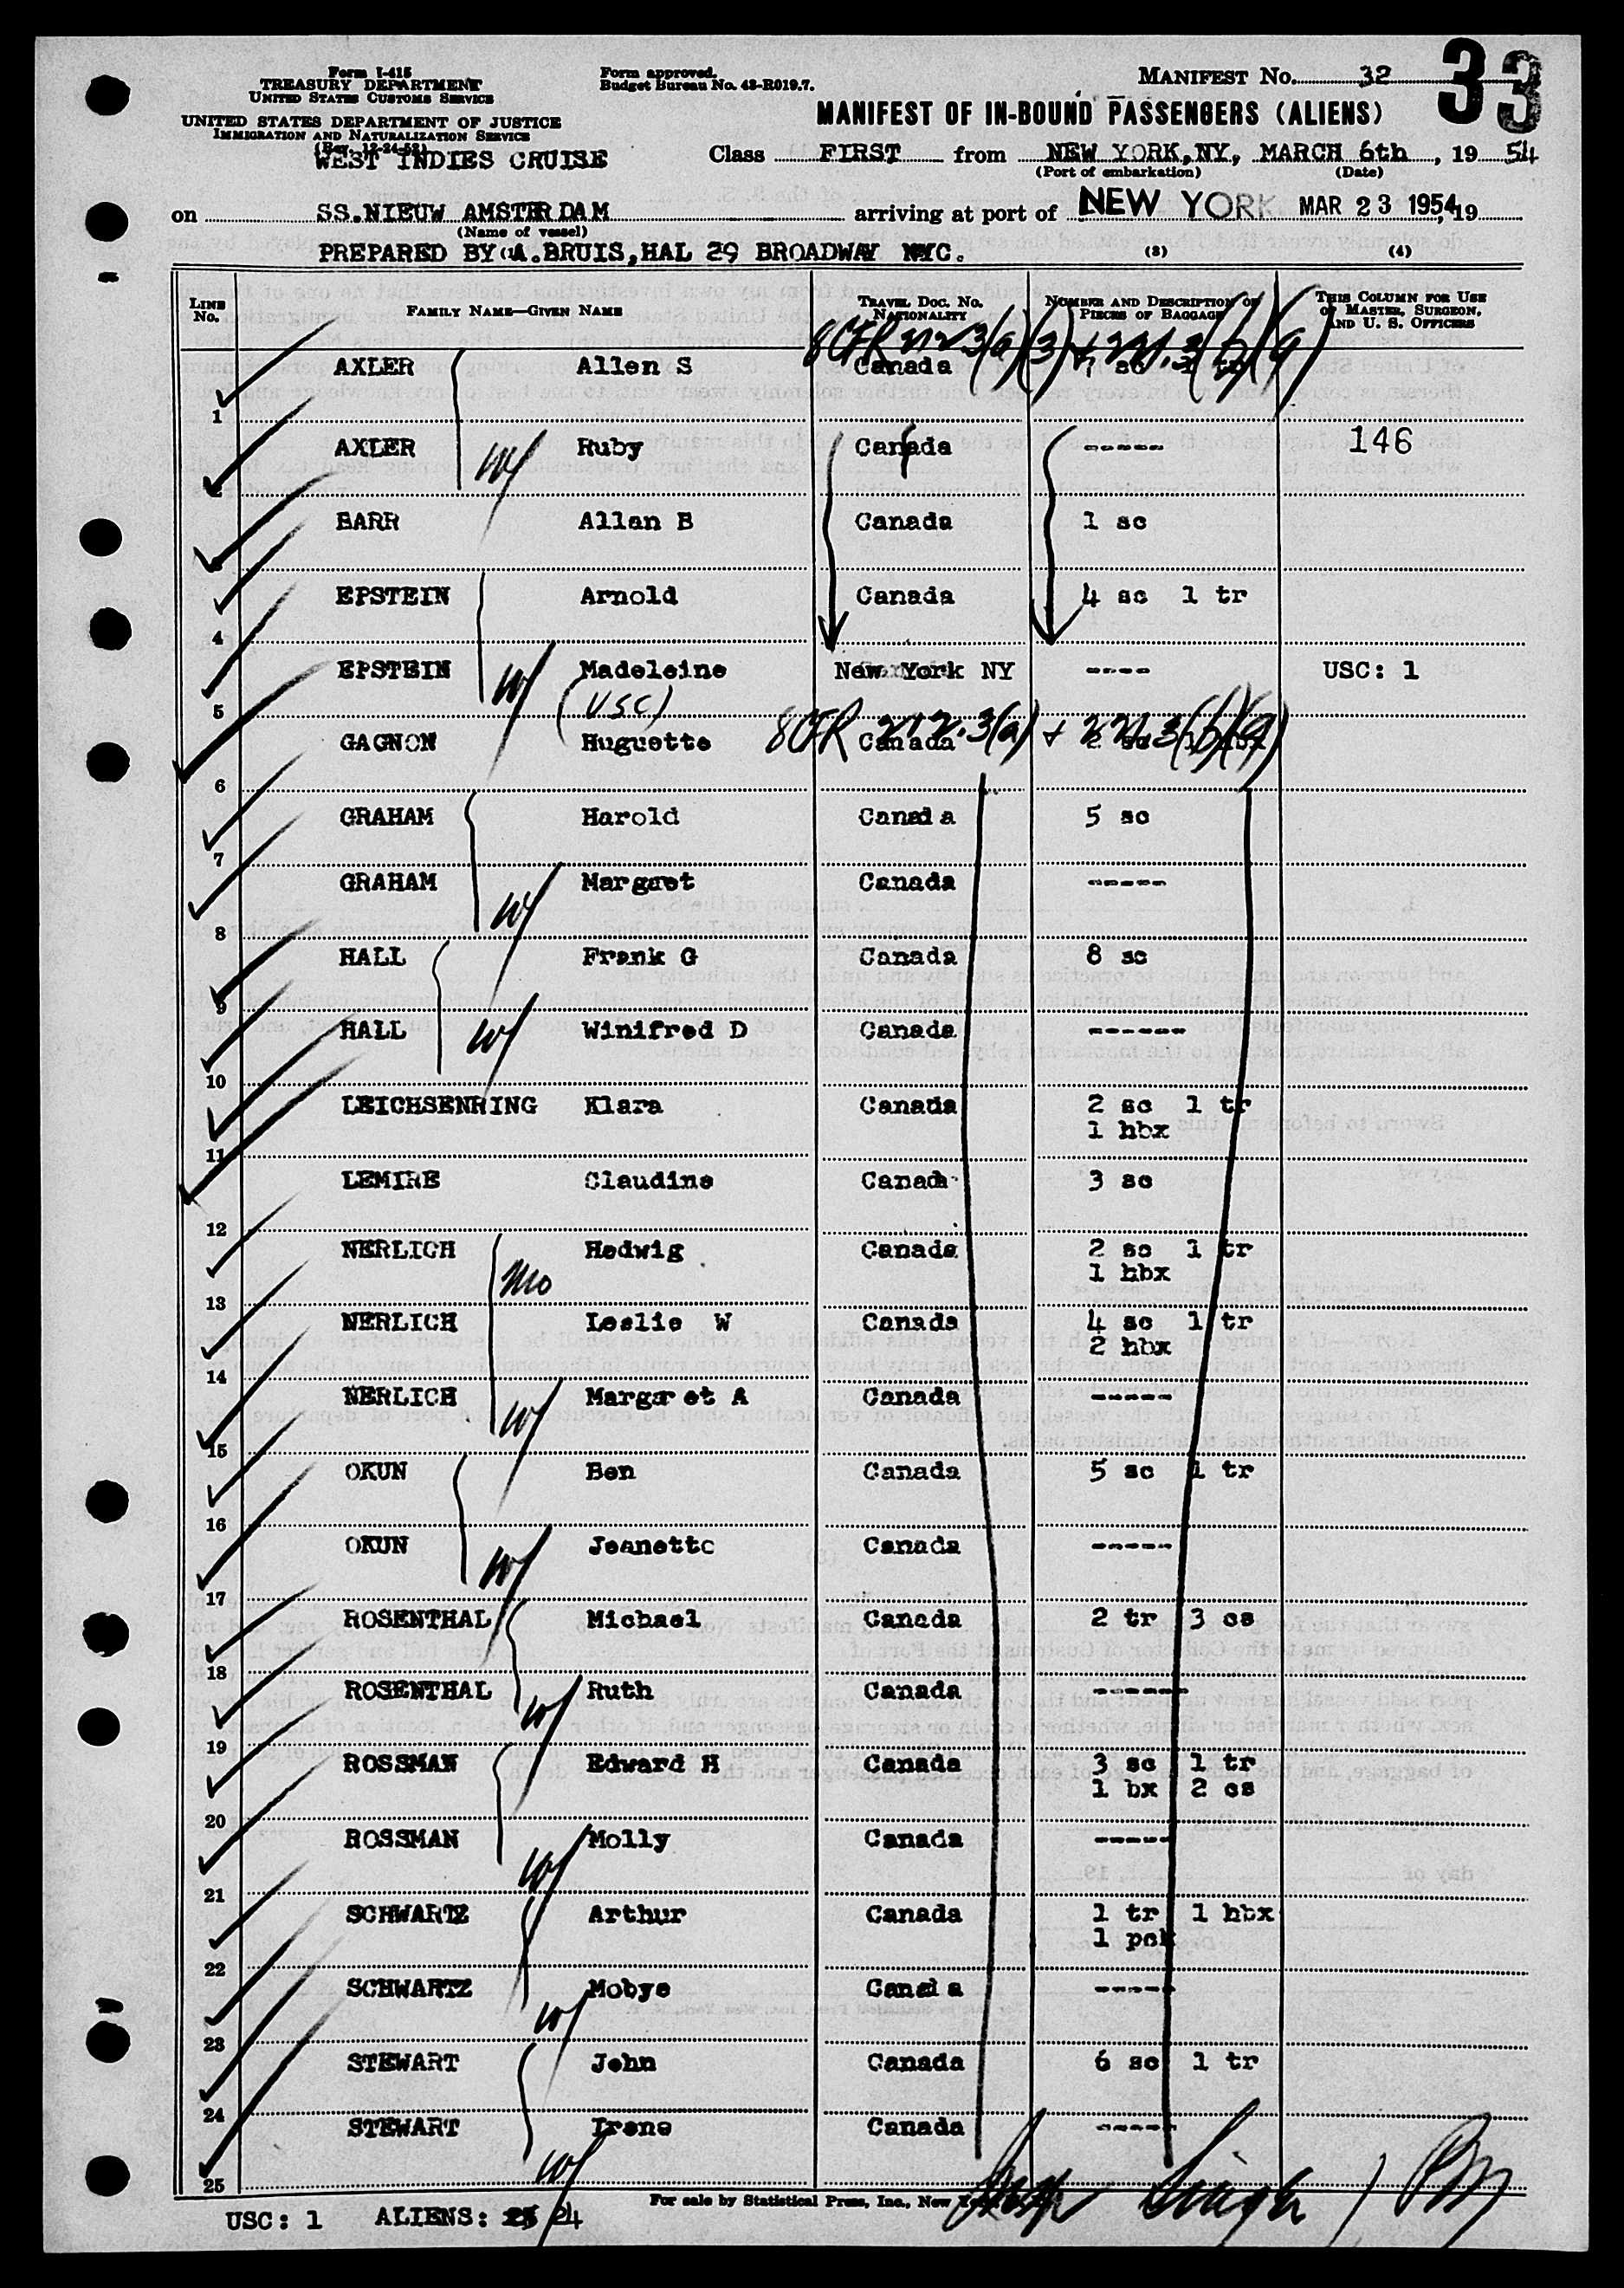 Form I-415
TREASURY DEPARTMENT
UNITED STATES CUSTOMS SERVICE
UNITED STATES DEPARTMENT OF JUSTICE
IMMIGRATION AND NATURALIZATION SERVICE
(Rev. 12-24-52)
Form approved.
Budget Bureau No. 43-R019.7.
MANIFEST No. 32
33
MANIFEST OF IN-BOUND PASSENGERS (ALIENS)
WEST INDIES CRUISE
Class FIRST from NEW YORK, NY, MARCH 6th, 19 54
(Port of embarkation) (Date)
on SS.NIEUW AMSTERDAM arriving at port of NEW YORK MAR 23 1954, 19
(Name of vessel)
PREPARED BY A.BRUIS,HAL 29 BROADWAY NYC. (3) (4)
LINE No. FAMILY NAME—GIVEN NAME TRAVEL DOC. NO. NATIONALITY NUMBER AND DESCRIPTION OF PIECES OF BAGGAGE THIS COLUMN FOR USE OF MASTER, SURGEON, AND U. S. OFFICERS
AXLER Allen S Canada
1
AXLER W/ Ruby Canada ----- 146
2
BARR Allan B Canada 1 sc
3
EPSTEIN Arnold Canada 4 sc 1 tr
4
EPSTEIN W/ Madeleine New York NY ---- USC: 1
(USC)
5
GAGNON Huguette 8CFR Canada
6
GRAHAM Harold Canada 5 sc
7
GRAHAM W/ Margaet Canada -----
8
HALL Frank G Canada 8 sc
9
HALL W/ Winifred D Canada ------
10
LEICHSENRING Klara Canada 2 sc 1 tr
1 hbx
11
LEMIRE Claudine Canada 3 sc
12
NERLICH Hedwig Canada 2 sc 1 tr
Mo 1 hbx
13
NERLICH Leslie W Canada 4 sc 1 tr
2 hbx
14
NERLICH W/ Margaret A Canada -----
15
OKUN Ben Canada 5 sc 1 tr
16
OKUN W/ Jeanette Canada -----
17
ROSENTHAL Michael Canada 2 tr 3 cs
18
ROSENTHAL W/ Ruth Canada ------
19
ROSSMAN Edward H Canada 3 sc 1 tr
1 bx 2 cs
20
ROSSMAN W/ Molly Canada -----
21
SCHWARTZ Arthur Canada 1 tr 1 hbx
1 pck
22
SCHWARTZ W/ Mobye Canada -----
23
STEWART John Canada 6 sc 1 tr
24
STEWART W/ Irene Canada -----
25
For sale by Statistical Press, Inc., New
USC: 1 ALIENS: 24